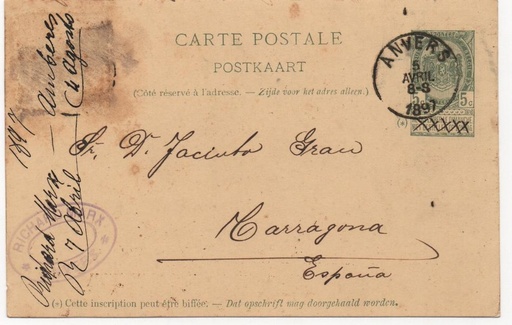 CARTE POSTALE
POSTKAART
(Côté réservé à l'adresse. — Zijde voor het adres alleen.)
ANVERS
5
AVRIL
8-S
1897
5c
(*)
Sr. Dn. Jacinto Grau
Tarragona
España
(*) Cette inscription peut être biffée. — Dat opschrift mag doorgehaald worden.
1897 — Amberes
Richard Marx
R 7 Abril
4 Agosto
RICHARD MARX